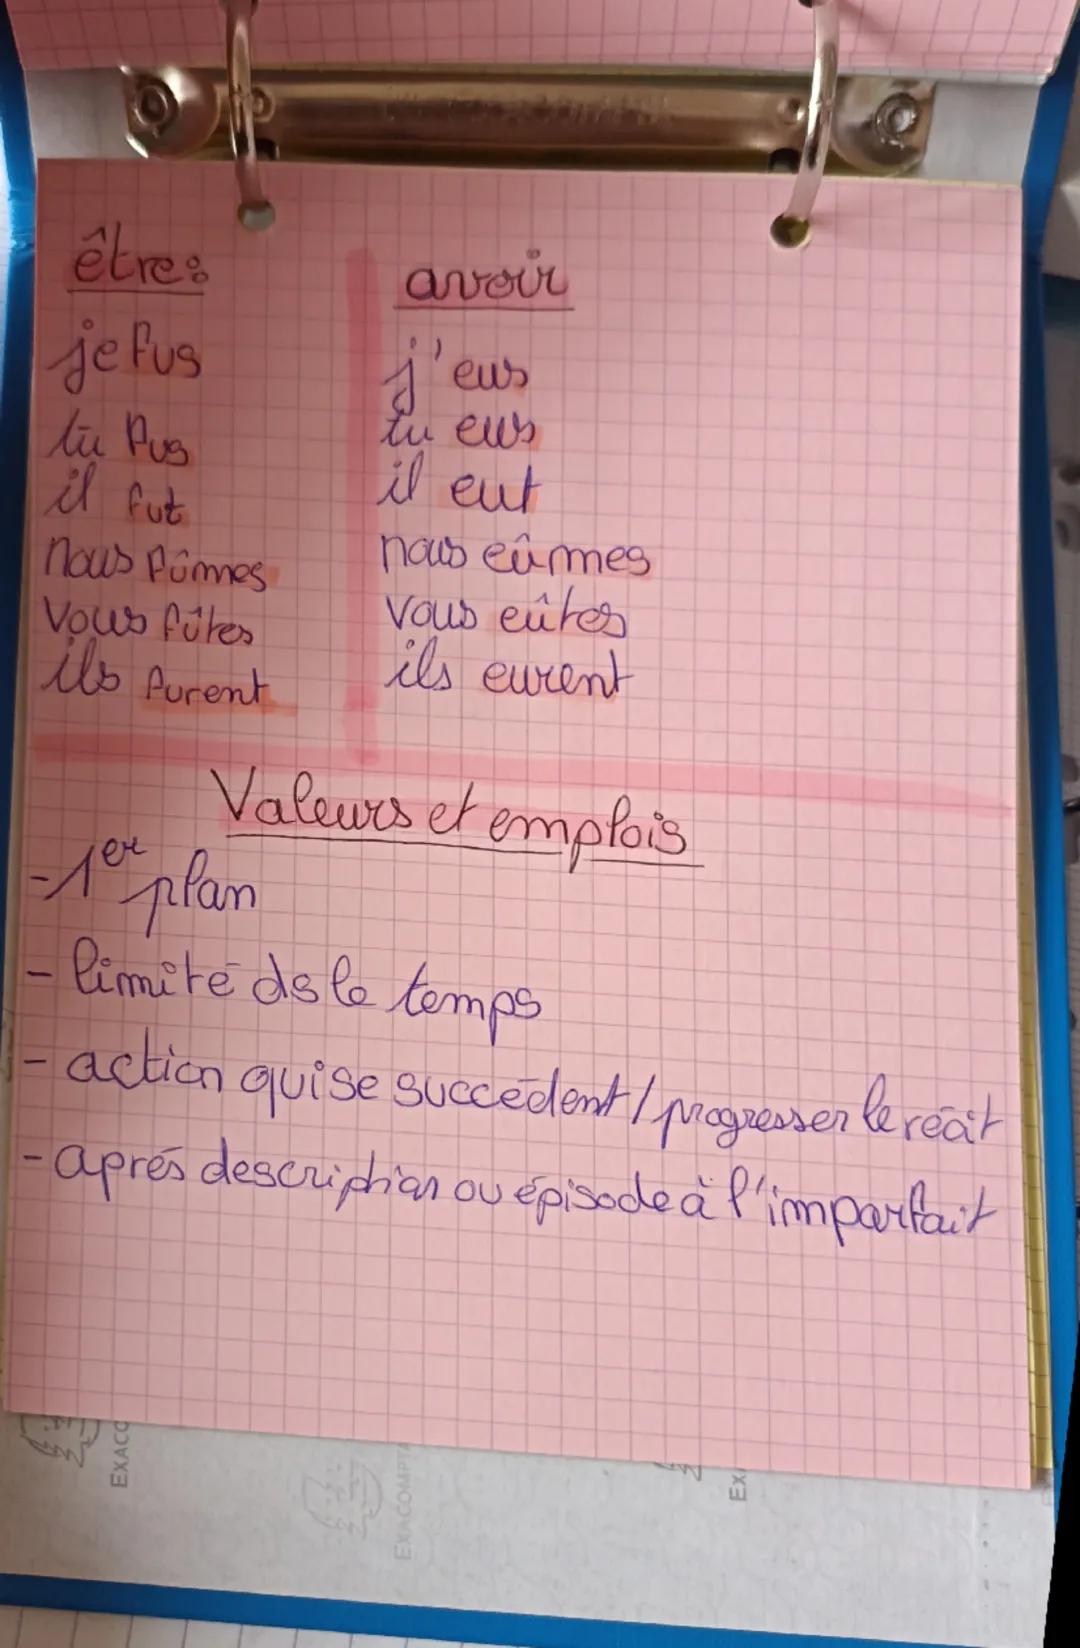 être:
je fus
tu fus
il fut
nous fûmes
Vous fûtes
ils furent
avoir
j'eus
tu eus
il eut
nous eûmes
Vous eûtes
ils eurent
Valeurs et emplois
-1er plan
- limité ds le temps
- action qui se succèdent/progresser le récit
- aprés description ou épisode à l'imparfait
EXACO
EXACOMPTA
EX